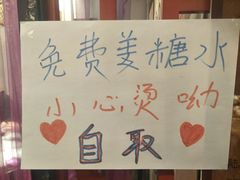 免费姜糖水
小心烫呦
自取